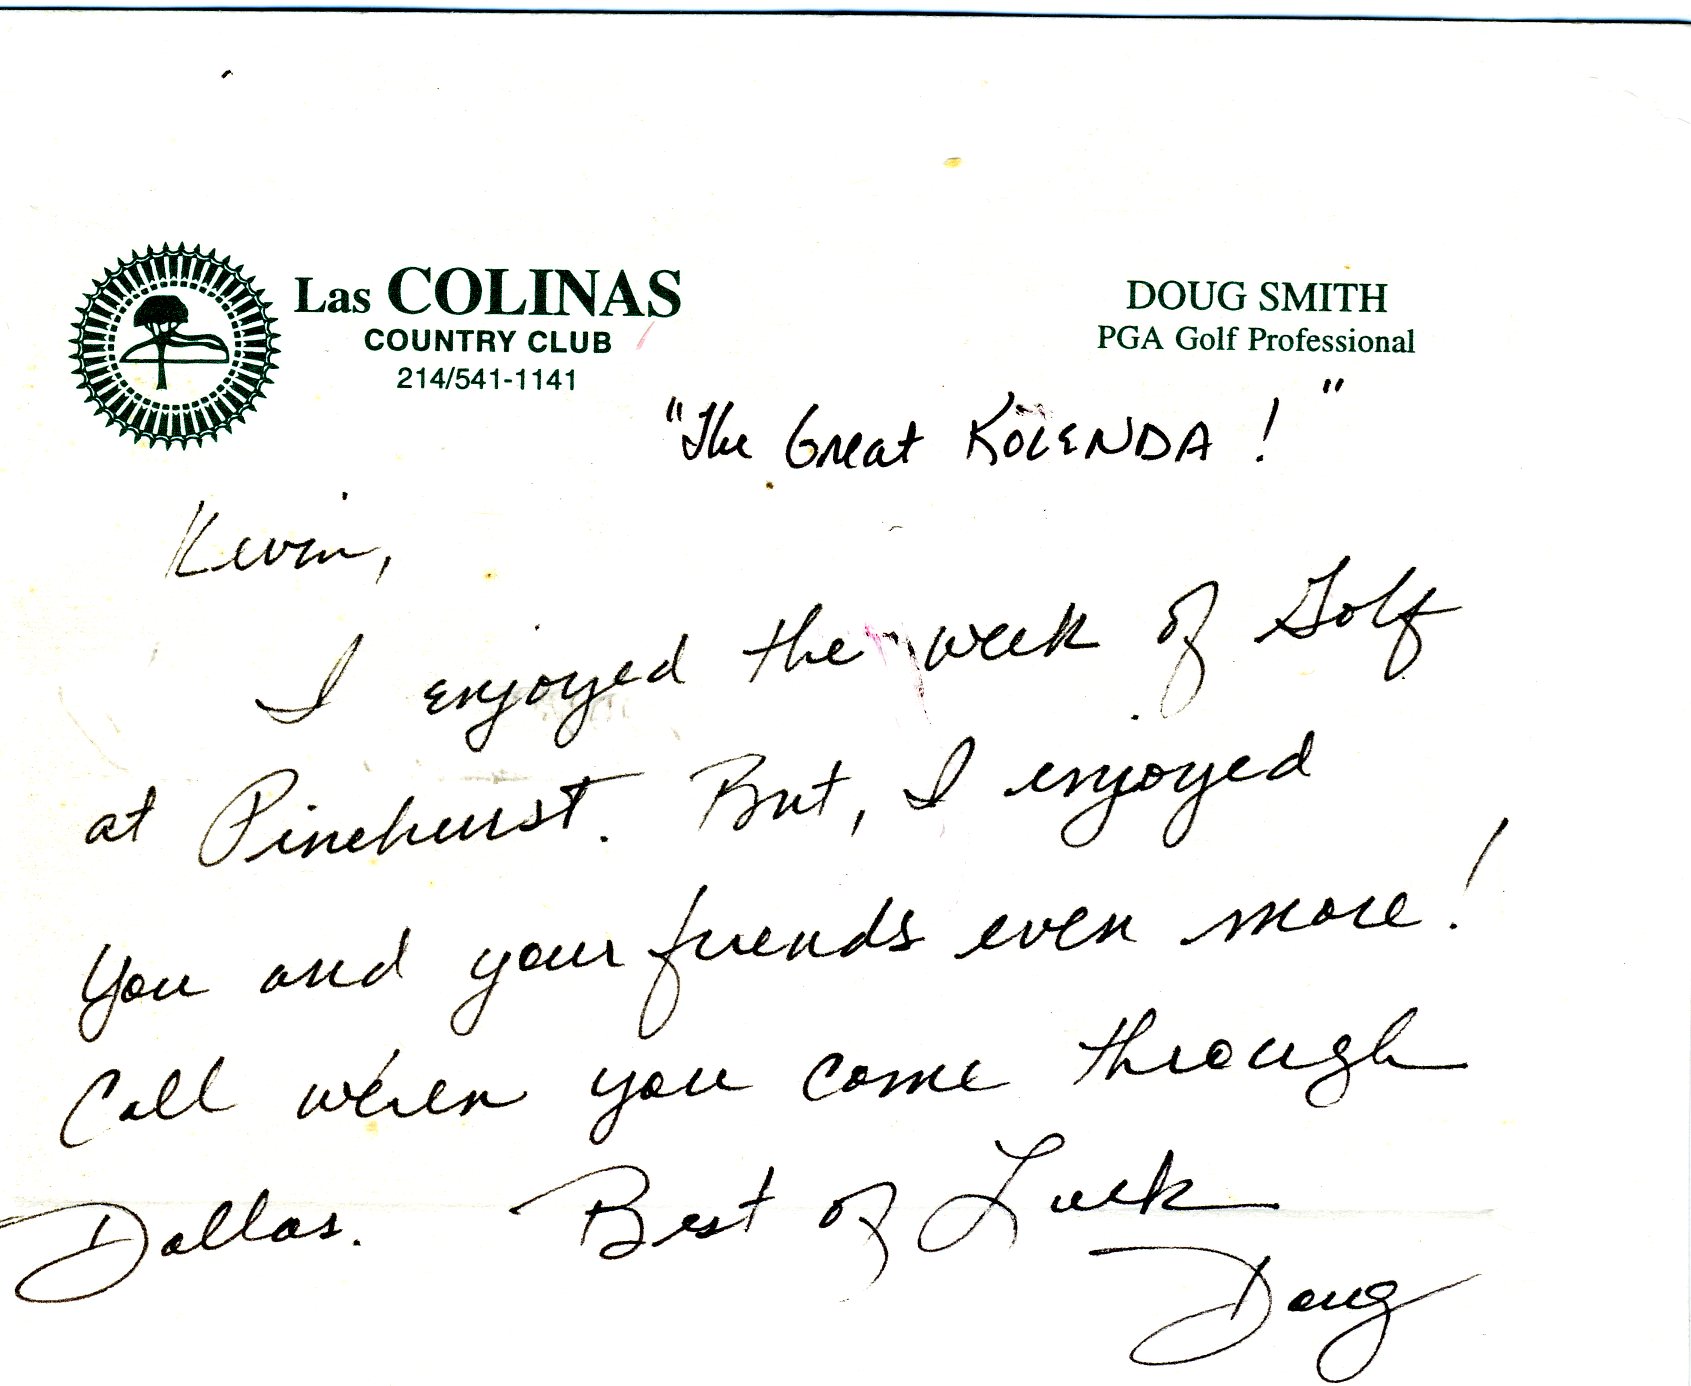 Las COLINAS
COUNTRY CLUB
214/541-1141
DOUG SMITH
PGA Golf Professional
"The Great KOLENDA!"
Kevin,
I enjoyed the week of Golf
at Pinehurst. But, I enjoyed
you and your friends even more!
Call when you come through
Dallas. Best of Luck
Doug